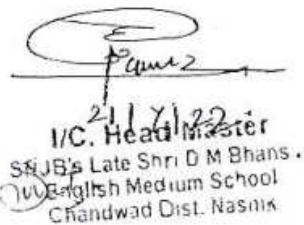 I/C. Head Master
SNJB's Late Shri D M Bhans.
English Medium School
Chandwad Dist. Nasik